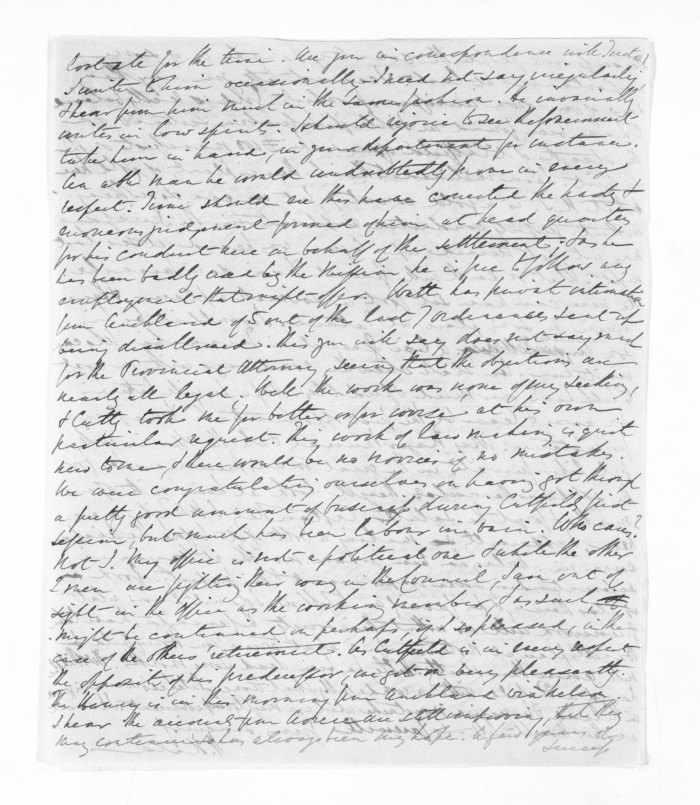 for the time. Are you in correspondence with
I write to him occasionally I need not say irregularly &
I hear from him much in the same fashion. He invariably
writes in low spirits. I should rejoice to see the Government
take him in hand, in your department for instance.
An able man he would undoubtedly prove in every
respect. Time should ere this have corrected the hasty &
erroneous judgment formed of him at head quarters
for his conduct here on behalf of the settlement; & as he
has been badly used by the he is free to follow any
employment that might offer. Watt has private intimation
from Auckland of 5 out of the last 7 ordinances sent up
being disallowed. This you will say does not say much
for the Provincial Attorney seeing that the objections are
nearly all legal. Well the work was none of my seeking,
& Cutty took me for better or for worse at his own
particular request. The work of law making is quite
new to me, & there would be no novices if no mistakes.
We were congratulating ourselves on having got through
a pretty good amount of business during Cutfield's first
session, but much has been labour in vain. Who cares?
Not I. My office is not a political one & while the other
men are fighting their way in the Council, I am out of
sight in the Office as the working member, & as such
might be continued on perhaps, if I so pleased, in the
case of the others' retirement. As Cutfield is in every respect
the opposite of his predecessor, we get on very pleasantly.
The is in this morning from Auckland
I hear the accounts from are still improving, that they
may continue so has always been my hope. A few years of
success